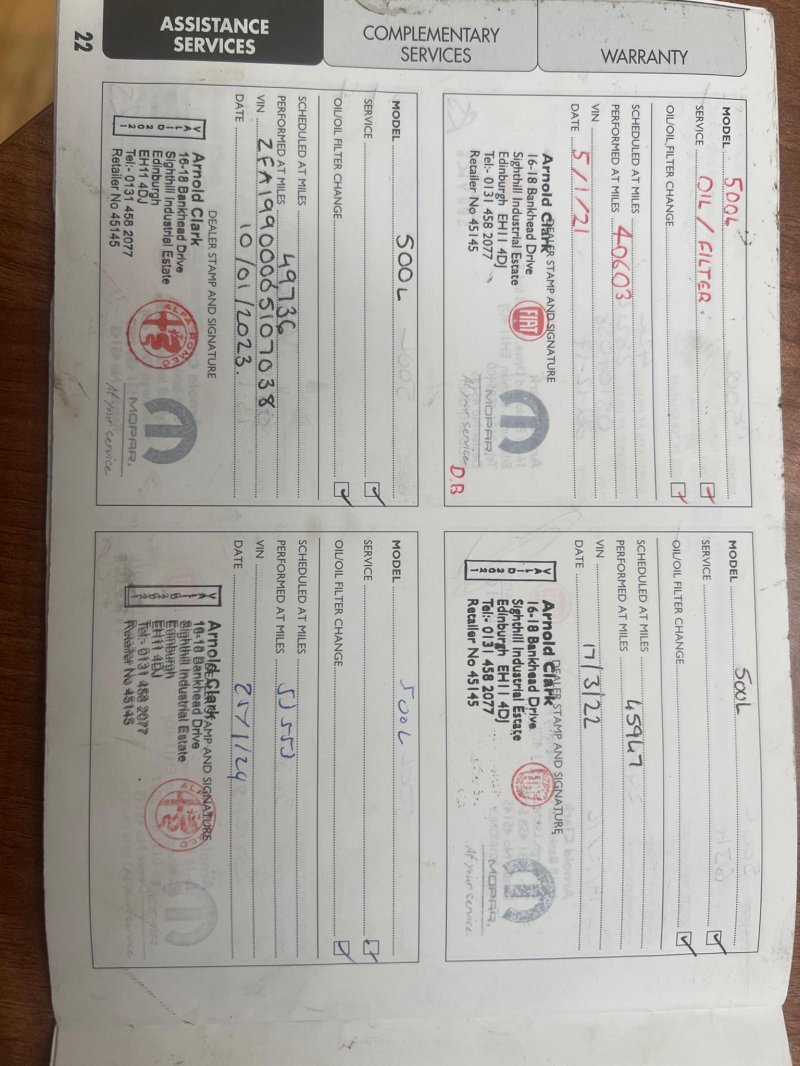 ASSISTANCE
SERVICES
COMPLEMENTARY
SERVICES
WARRANTY
22
MODEL 500L
SERVICE OIL / FILTER.
OIL/OIL FILTER CHANGE
SCHEDULED AT MILES
PERFORMED AT MILES 40603
VIN
DATE 5/1/21
DEALER STAMP AND SIGNATURE
Arnold Clark
16-18 Bankhead Drive
Sighthill Industrial Estate
Edinburgh EH11 4DJ
Tel:- 0131 458 2077
Retailer No 45145
FIAT
MOPAR.
At your service
D.B
MODEL 500L
SERVICE
OIL/OIL FILTER CHANGE
SCHEDULED AT MILES
PERFORMED AT MILES 45947
VIN
DATE 17/3/22
DEALER STAMP AND SIGNATURE
VALID 2021
Arnold Clark
16-18 Bankhead Drive
Sighthill Industrial Estate
Edinburgh EH11 4DJ
Tel:- 0131 458 2077
Retailer No 45145
MOPAR.
At your service
MODEL 500L
SERVICE
OIL/OIL FILTER CHANGE
SCHEDULED AT MILES
PERFORMED AT MILES 49736
VIN ZFA19900005107038
DATE 10/01/2023.
DEALER STAMP AND SIGNATURE
VALID 2021
Arnold Clark
16-18 Bankhead Drive
Sighthill Industrial Estate
Edinburgh
EH11 4DJ
Tel:- 0131 458 2077
Retailer No 45145
ALFA ROMEO
MOPAR.
At your service
MODEL 500L
SERVICE
OIL/OIL FILTER CHANGE
SCHEDULED AT MILES
PERFORMED AT MILES
VIN
DATE 25/1/24
DEALER STAMP AND SIGNATURE
Arnold Clark
16-18 Bankhead Drive
Sighthill Industrial Estate
Edinburgh
EH11 4DJ
Tel:- 0131 458 2077
Retailer No 45145
ALFA ROMEO